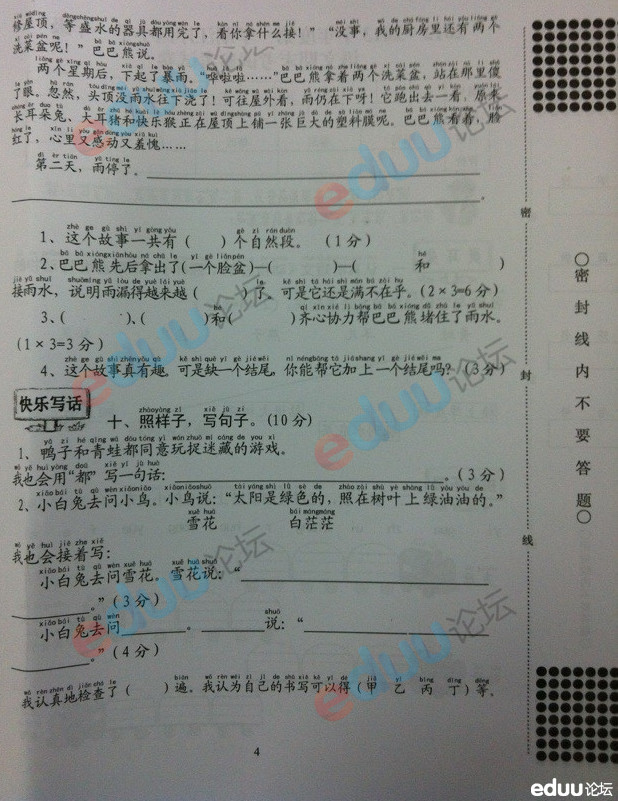 修屋顶,等盛水的器具都用完了,看你拿什么接!”“没事,我的厨房里还有两个
洗菜盆呢!”巴巴熊说。
两个星期后,下起了暴雨。“哗啦啦……”巴巴熊拿着两个洗菜盆,站在那里傻
了眼。忽然,头顶没雨水往下浇了!可往屋外看,雨仍在下呀!它跑出去一看,原来
长耳朵兔、大耳猪和快乐猴正在屋顶上铺一张巨大的塑料膜呢。巴巴熊看着,脸
红了,心里又感动又羞愧……
第二天,雨停了。
。
1、这个故事一共有( )个自然段。(1分)
2、巴巴熊先后拿出了(一个脸盆)—( )—( 和 )
接雨水,说明雨漏得越来越( )了,可是它还是满不在乎。(2×3=6分)
3、( )、( )和( )齐心协力帮巴巴熊堵住了雨水。
(1×3=3分)
4、这个故事真有趣,可是缺一个结尾,你能帮它加上一个结尾吗?(3分)
快乐写话
十、照样子,写句子。(10分)
1、鸭子和青蛙都同意玩捉迷藏的游戏。
我也会用“都”写一句话: 。(3分)
2、小白兔去问小鸟。小鸟说:“太阳是绿色的,照在树叶上绿油油的。”
雪花 白茫茫
我也会接着写:
小白兔去问雪花。雪花说:“
。”(3分)
小白兔去问 。 说:“
。”(4分)
我认真地检查了( )遍。我认为自己的书写可以得(甲 乙 丙 丁)等。
4
密
封
线
○密封线内不要答题○
eduu论坛
eduu论坛
eduu论坛
eduu论坛
eduu论坛
eduu论坛
eduu论坛